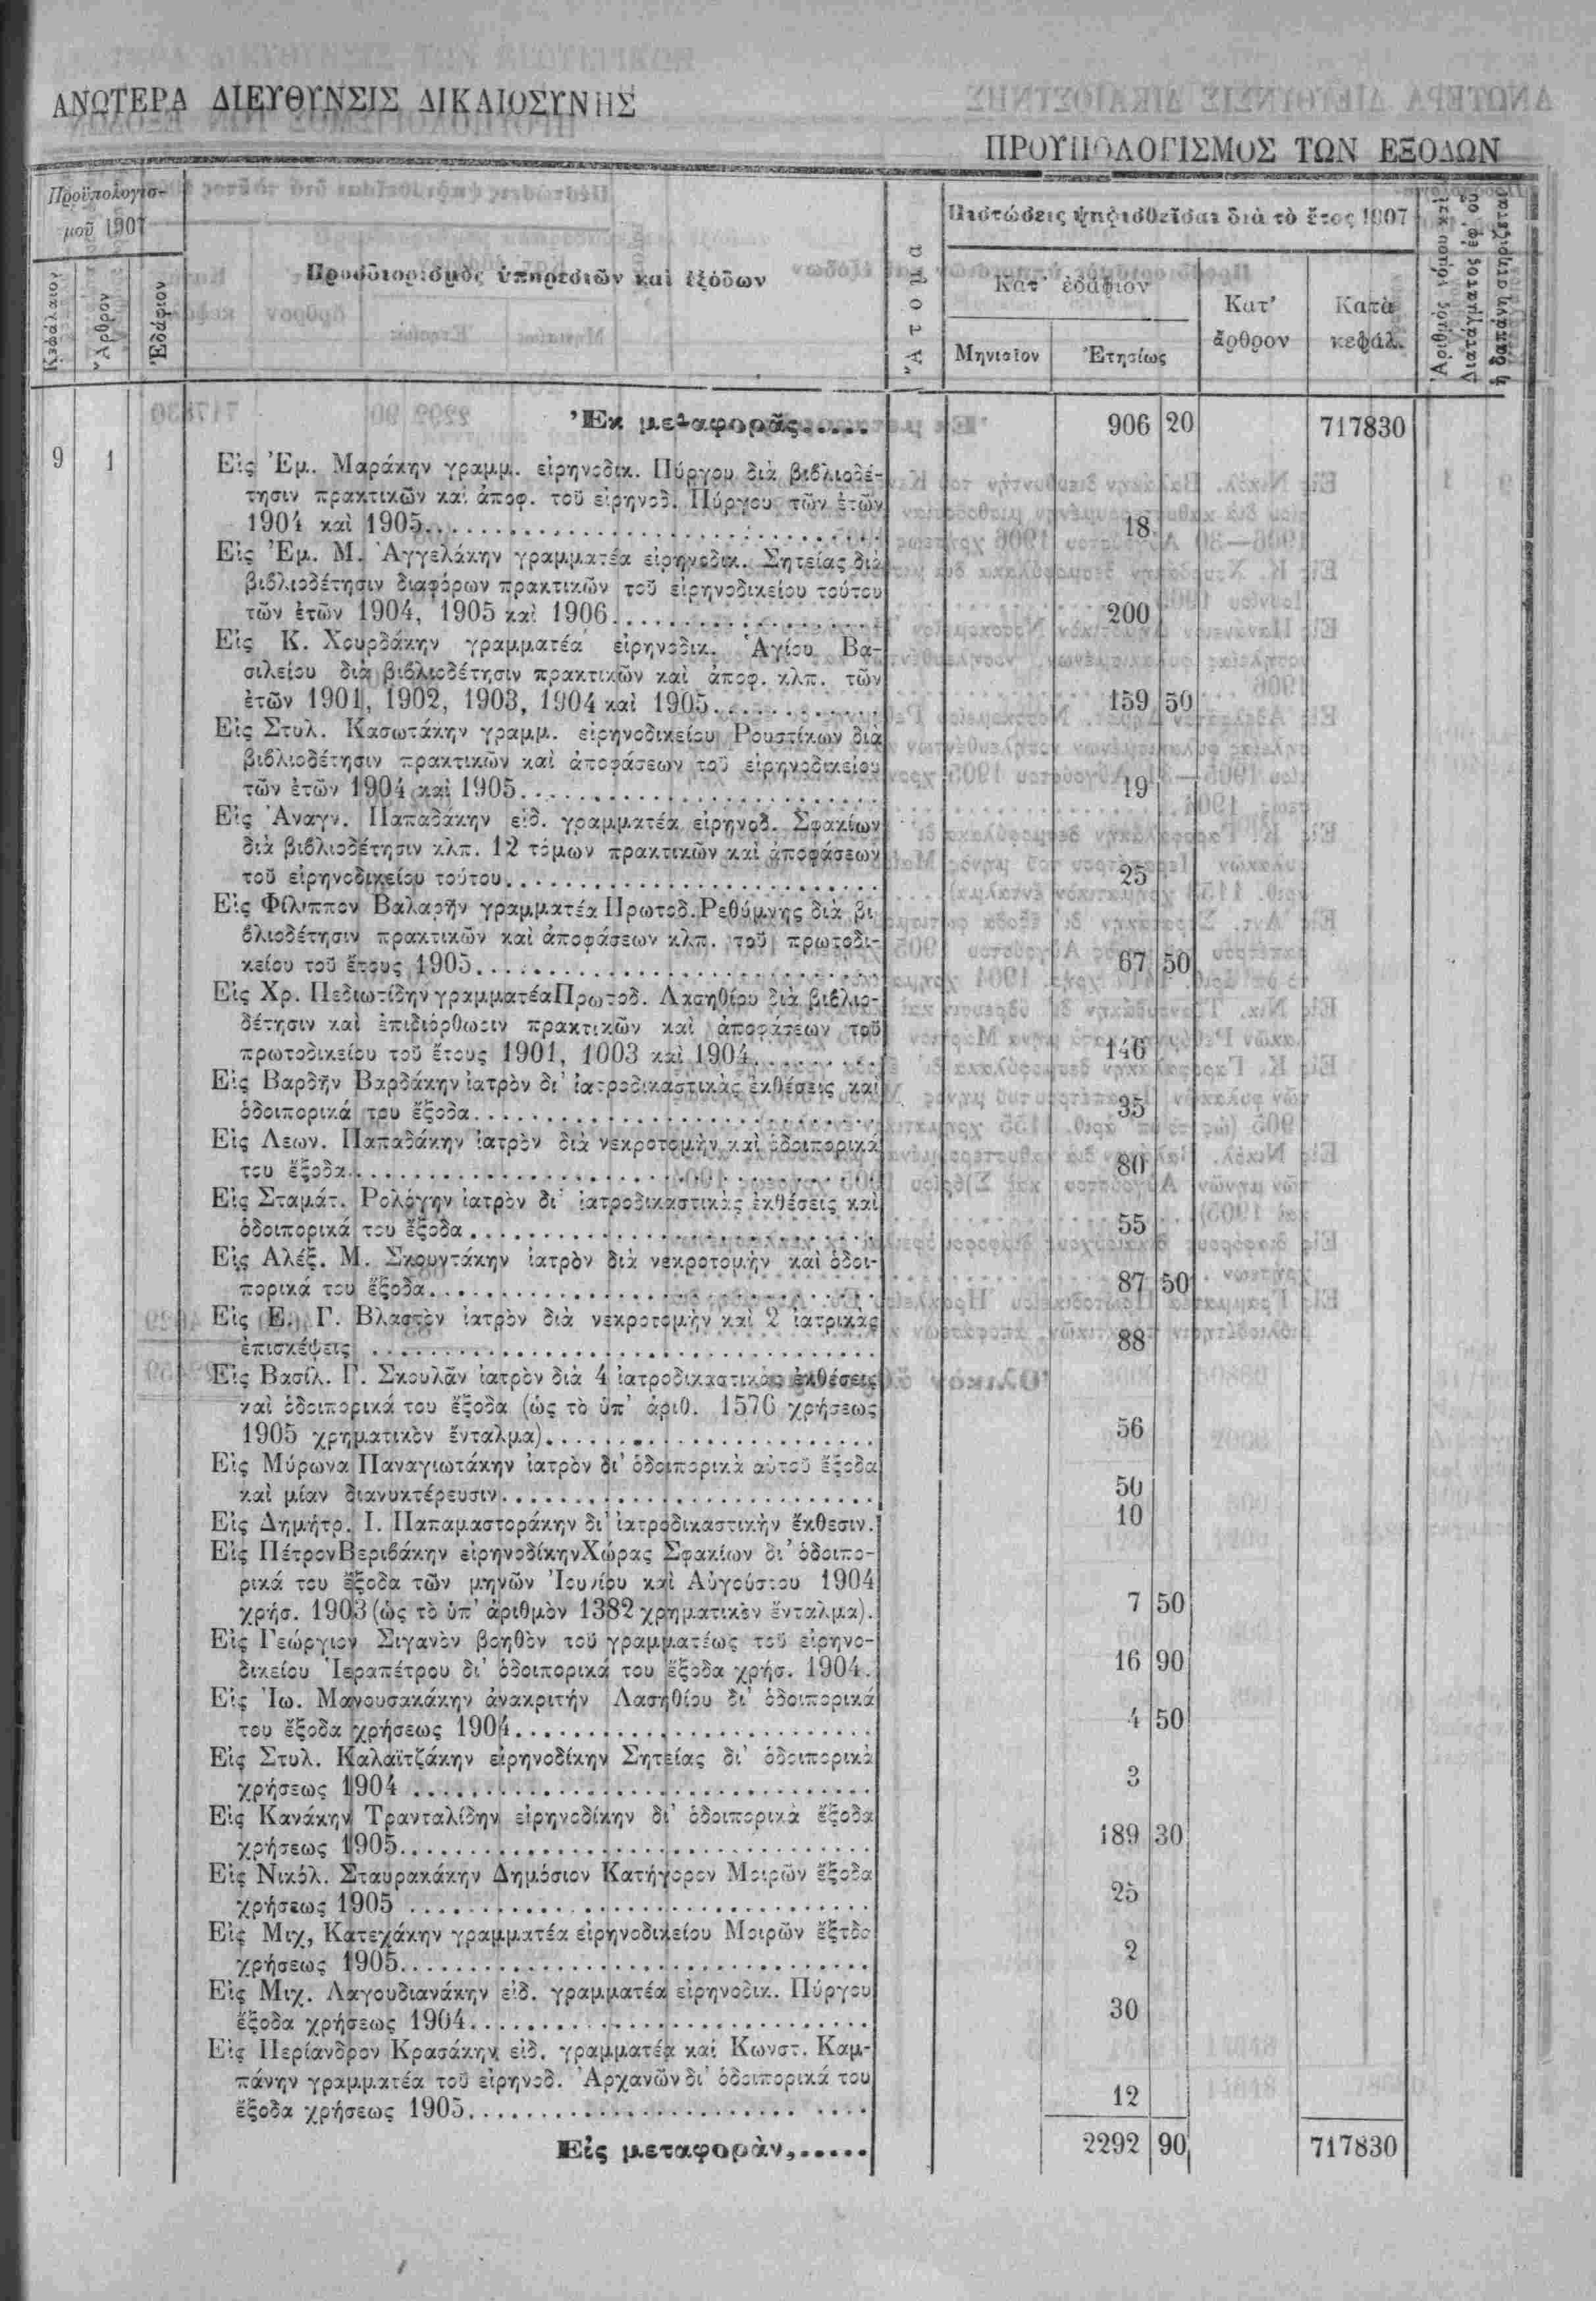 ΑΝΩΤΕΡΑ ΔΙΕΥΘΥΝΣΙΣ ΔΙΚΑΙΟΣΥΝΗΣ
ΠΡΟΥΠΟΛΟΓΙΣΜΟΣ ΤΩΝ ΕΞΟΔΩΝ
Προϋπολογισ-
μοῦ 1907
Κεφάλαιον
Ἄρθρον
Ἐδάφιον
Προσδιορισμὸς ὑπηρεσιῶν καὶ ἐξόδων
Ἄτομα
Πιστώσεις ψηφισθεῖσαι διὰ τὸ ἔτος 1907
Κατ' ἐδάφιον
Μηνιαῖον
Ἐτησίως
Κατ'
ἄρθρον
Κατὰ
κεφάλ.
Ἐκ μεταφορᾶς..... 906 20 717830
9 1
Εἰς Ἐμ. Μαράκην γραμμ. εἰρηνοδικ. Πύργου διὰ βιβλιοδέ-
τησιν πρακτικῶν καὶ ἀποφ. τοῦ εἰρηνοδ. Πύργου τῶν ἐτῶν
1904 καὶ 1905. 18
Εἰς Ἐμ. Μ. Ἀγγελάκην γραμματέα εἰρηνοδικ. Σητείας διὰ
βιβλιοδέτησιν διαφόρων πρακτικῶν τοῦ εἰρηνοδικείου τούτου
τῶν ἐτῶν 1904, 1905 καὶ 1906. 200
Εἰς Κ. Χουρδάκην γραμματέα εἰρηνοδικ. Ἁγίου Βα-
σιλείου διὰ βιβλιοδέτησιν πρακτικῶν καὶ ἀποφ. κλπ. τῶν
ἐτῶν 1901, 1902, 1903, 1904 καὶ 1905. 159 50
Εἰς Στυλ. Κασωτάκην γραμμ. εἰρηνοδικείου Ρουστίκων διὰ
βιβλιοδέτησιν πρακτικῶν καὶ ἀποφάσεων τοῦ εἰρηνοδικείου
τῶν ἐτῶν 1904 καὶ 1905. 19
Εἰς Ἀναγν. Παπαδάκην εἰδ. γραμματέα εἰρηνοδ. Σφακίων
διὰ βιβλιοδέτησιν κλπ. 12 τόμων πρακτικῶν καὶ ἀποφάσεων
τοῦ εἰρηνοδικείου τούτου. 25
Εἰς Φίλιππον Βαλαρῆν γραμματέα Πρωτοδ. Ρεθύμνης διὰ βι
βλιοδέτησιν πρακτικῶν καὶ ἀποφάσεων κλπ. τοῦ πρωτοδι-
κείου τοῦ ἔτους 1905. 67 50
Εἰς Χρ. Πεδιωτίδην γραμματέα Πρωτοδ. Λασηθίου διὰ βιβλιο-
δέτησιν καὶ ἐπιδιόρθωσιν πρακτικῶν καὶ ἀποφάσεων τοῦ
πρωτοδικείου τοῦ ἔτους 1901, 1003 καὶ 1904. 146
Εἰς Βαρδῆν Βαρδάκην ἰατρὸν δι' ἰατροδικαστικὰς ἐκθέσεις καὶ
ὁδοιπορικά του ἔξοδα. 35
Εἰς Λεων. Παπαδάκην ἰατρὸν διὰ νεκροτομὴν καὶ ὁδοιπορικά
του ἔξοδα. 80
Εἰς Σταμάτ. Ρολόγην ἰατρὸν δι' ἰατροδικαστικὰς ἐκθέσεις καὶ
ὁδοιπορικά του ἔξοδα. 55
Εἰς Αλέξ. Μ. Σκουντάκην ἰατρὸν διὰ νεκροτομὴν καὶ ὁδοι-
πορικά του ἔξοδα. 87 50
Εἰς Ε. Γ. Βλαστὸν ἰατρὸν διὰ νεκροτομὴν καὶ 2 ἰατρικὰς
ἐπισκέψεις 88
Εἰς Βασίλ. Γ. Σκουλᾶν ἰατρὸν διὰ 4 ἰατροδικαστικὰς ἐκθέσεις
καὶ ὁδοιπορικά του ἔξοδα (ὡς τὸ ὑπ' ἀριθ. 1576 χρήσεως
1905 χρηματικὸν ἔνταλμα). 56
Εἰς Μύρωνα Παναγιωτάκην ἰατρὸν δι' ὁδοιπορικὰ αὐτοῦ ἔξοδα
καὶ μίαν διανυκτέρευσιν. 50
Εἰς Δημήτρ. Ι. Παπαμαστοράκην δι' ἰατροδικαστικὴν ἔκθεσιν. 10
Εἰς Πέτρον Βεριβάκην εἰρηνοδίκην Χώρας Σφακίων δι' ὁδοιπο-
ρικά του ἔξοδα τῶν μηνῶν Ἰουνίου καὶ Αὐγούστου 1904
χρήσ. 1903 (ὡς τὸ ὑπ' ἀριθμὸν 1382 χρηματικὸν ἔνταλμα). 7 50
Εἰς Γεώργιον Σιγανὸν βοηθὸν τοῦ γραμματέως τοῦ εἰρηνο-
δικείου Ἱεραπέτρου δι' ὁδοιπορικά του ἔξοδα χρήσ. 1904. 16 90
Εἰς Ἰω. Μανουσακάκην ἀνακριτήν Λασηθίου δι' ὁδοιπορικά
του ἔξοδα χρήσεως 1904. 4 50
Εἰς Στυλ. Καλαϊτζάκην εἰρηνοδίκην Σητείας δι' ὁδοιπορικὰ
χρήσεως 1904 3
Εἰς Κανάκην Τρανταλίδην εἰρηνοδίκην δι' ὁδοιπορικὰ ἔξοδα
χρήσεως 1905. 189 30
Εἰς Νικόλ. Σταυρακάκην Δημόσιον Κατήγορον Μοιρῶν ἔξοδα
χρήσεως 1905 25
Εἰς Μιχ, Κατεχάκην γραμματέα εἰρηνοδικείου Μοιρῶν
χρήσεως 1905. 2
Εἰς Μιχ. Λαγουδιανάκην εἰδ. γραμματέα εἰρηνοδικ. Πύργου
ἔξοδα χρήσεως 1904. 30
Εἰς Περίανδρον Κρασάκην εἰδ. γραμματέα καί Κωνστ. Καμ-
πάνην γραμματέα τοῦ εἰρηνοδ. Ἀρχανῶν δι' ὁδοιπορικά του
ἔξοδα χρήσεως 1905. 12
Εἰς μεταφορὰν,..... 2292 90 717830